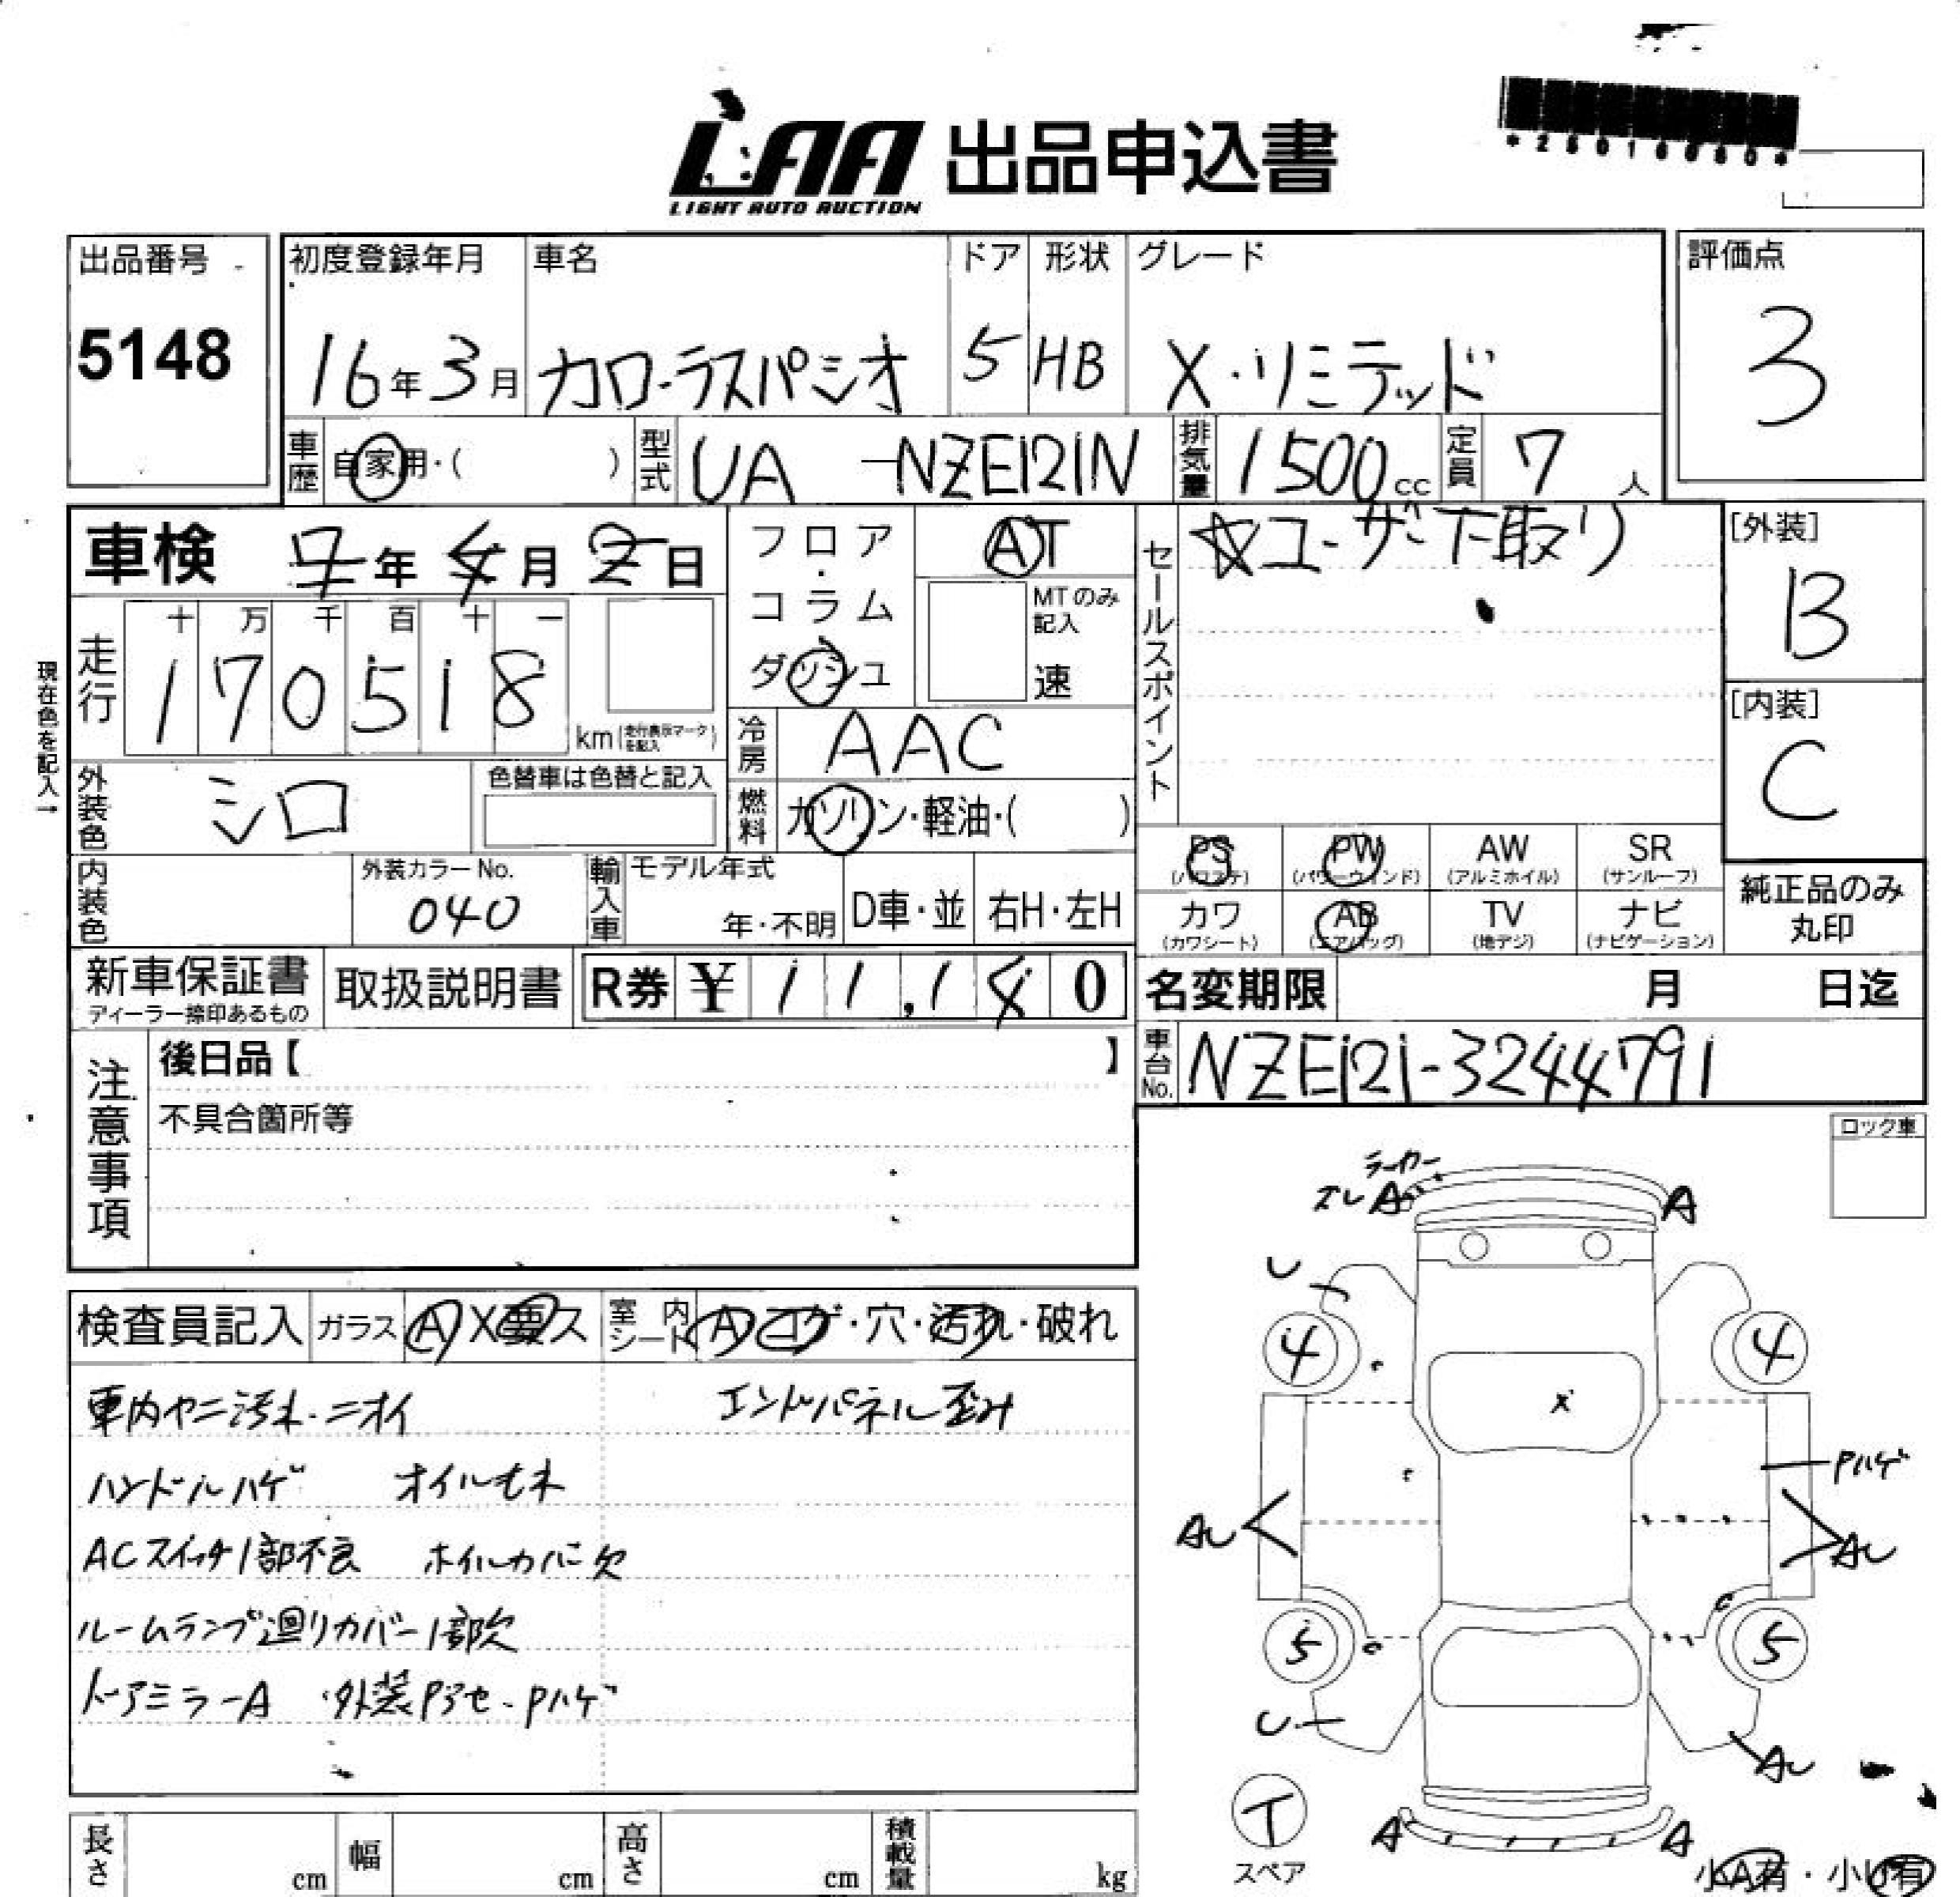 LAA 出品申込書
LIGHT AUTO AUCTION
出品番号
5148
初度登録年月
16年3月
車名
カローラスパシオ
ドア
5
形状
HB
グレード
X・リミテッド
評価点
3
車歴 自家用・( )
型式 UA -NZE121N
排気量 1500cc
定員 7人
車検 年 月 日
走行
十 万 千 百 十 一
1 7 0 5 1 8
km(走行表示マークを記入)
現在色を記入→
外装色 シロ
色替車は色替と記入
内装色
外装カラーNo.
040
フロア・コラム
ダッシュ
AT
MTのみ記入
速
冷房 AAC
燃料 ガソリン・軽油・( )
輸入車
モデル年式
年・不明
D車・並
右H・左H
セールスポイント
☆ユーザー下取り
[外装]
B
[内装]
C
PS
(パワステ)
PW
(パワーウインド)
AW
(アルミホイル)
SR
(サンルーフ)
カワ
(カワシート)
AB
(エアバッグ)
TV
(地デジ)
ナビ
(ナビゲーション)
純正品のみ
丸印
新車保証書
ディーラー捺印あるもの
取扱説明書
R券 ¥ 11,180
名変期限 月 日迄
車台No. NZE121-3244791
注意事項
後日品【 】
不具合箇所等
ロック車
検査員記入
ガラス A X 要ス
室内シート A コゲ・穴・汚れ・破れ
車内ヤニ汚れ・ニオイ
エンドパネル歪み
ハンドルハゲ オイルモレ
ACスイッチ1部不良 ホイルカバー欠
ルームランプ廻りカバー1部欠
ドアミラーA 外装Pアセ・Pハゲ
ラーカー
ズレ A
A
U
4
4
X
Pハゲ
AU
AU
C
C
5
5
U
AU
T
スペア
A
A
小A有・小U有
長さ cm
幅 cm
高さ cm
積載量 kg